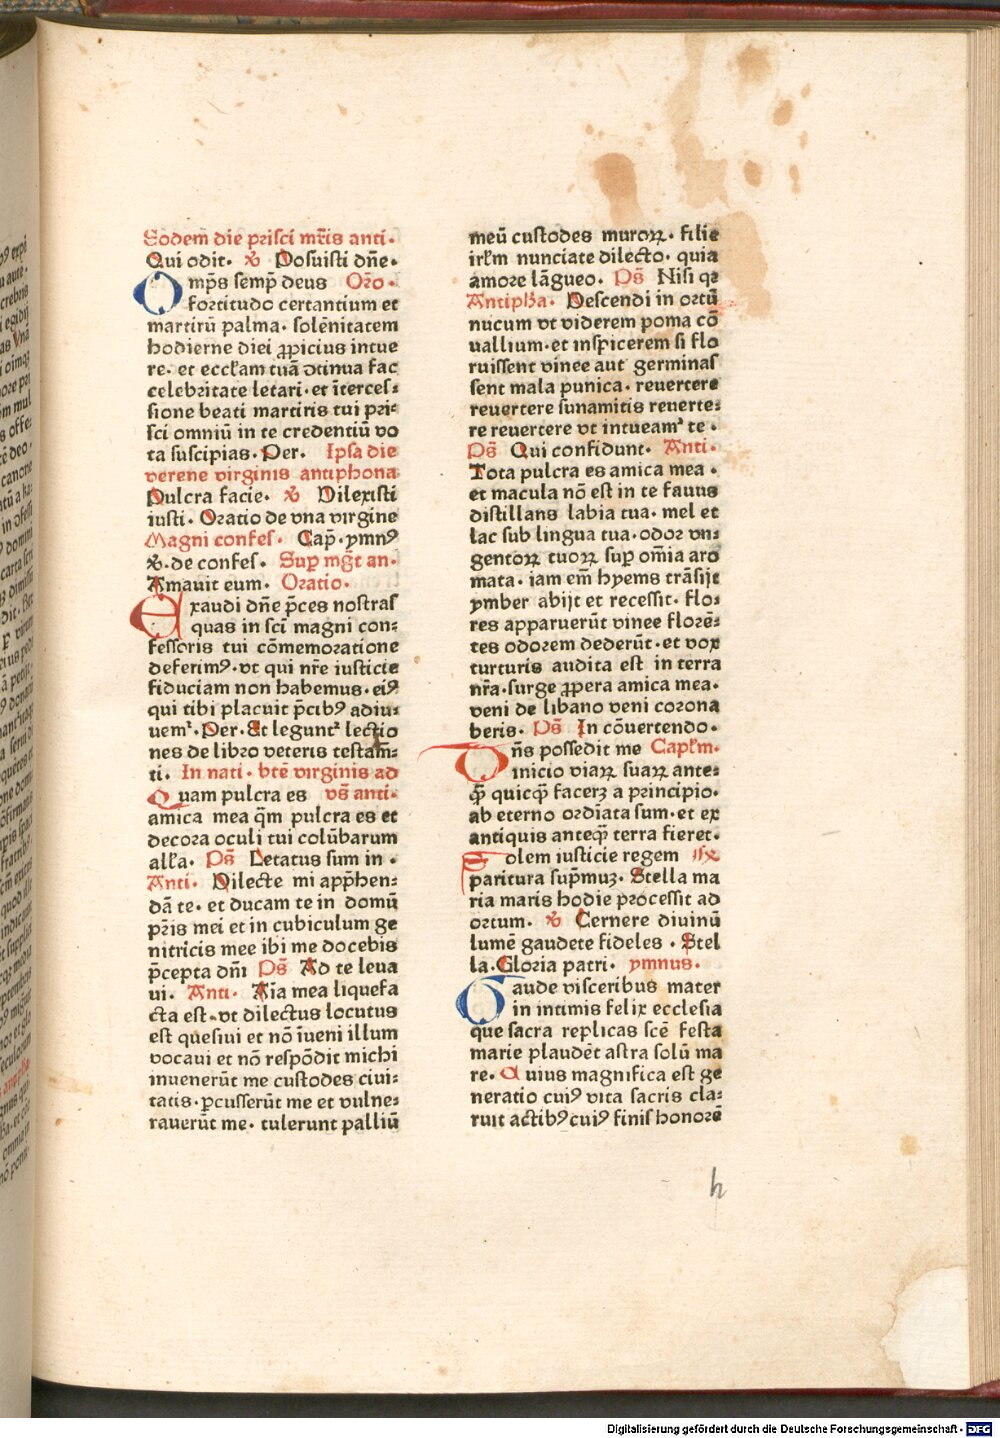 Eodem die prisci mr̄is anti.
Qui odit. ꝟ Posuisti dn̄e.
Omp̄s semꝑ deus Or̄o.
fortitudo certantium et
martirū palma. solēnitatem
hodierne diei ꝓpicius intue
re. et eccłam tuā ↄtinua fac
celebritate letari. et īterces⸗
sione beati martiris tui pri⸗
sci omniū in te credentiū vo
ta suscipias. Per. Ipsa die
verene virginis antiphona
Pulcra facie. ꝟ Dilexisti
iusti. Oratio de vna virgine
Magni confes. Cap̄. ymnꝰ
ꝟ. de confes. Suꝑ mḡt an.
Amauit eum. Oratio.
Exaudi dn̄e p̄ces nostras
quas in sci̅ magni con⸗
fessoris tui cōmemoratione
deferimꝰ. vt qui nr̄e iusticie
fiduciam non habemus. eiꝰ
qui tibi placuit p̄cibꝰ adiu⸗
uemᷣ. Per. Et leguntᷣ lectio
nes de libro veteris testam⸗
ti. In nati. btē virginis ad
Quam pulcra es vs̄ anti.
amica mea q̄m pulcra es et
decora oculi tui colūbarum
alła. Ps̄ Letatus sum in.
Anti. Dilecte mi app̄hen⸗
dā te. et ducam te in domū
pr̄is mei et in cubiculum ge
nitricis mee ibi me docebis
p̄cepta dn̄i Ps̄ Ad te leua
ui. Anti. Aīa mea liquefa
cta est. vt dilectus locutus
est quesiui et nō īueni illum
vocaui et nō respōdit michi
inuenerūt me custodes ciui⸗
tatis. ꝑcusserūt me et vulne⸗
rauerūt me. tulerunt palliū
meū custodes muroꝝ. filie
irłm nunciate dilecto. quia
amore lāgueo. Ps̄ Nisi qꝛ
Antipħa. Descendi in ortū
nucum vt viderem poma cō
uallium. et inspicerem si flo
ruissent vinee aut germinas
sent mala punica. reuertere
reuertere sunamitis reuerte⸗
re reuertere vt intueamᷣ te.
Ps̄ Qui confidunt. Anti.
Tota pulcra es amica mea.
et macula nō est in te fauus
distillans labia tua. mel et
lac sub lingua tua. odor vn⸗
gentoꝝ tuoꝝ suꝑ om̄ia aro
mata. iam em̄ hyems trāsijt
ymber abijt et recessit. flo⸗
res apparuerūt vinee florē⸗
tes odorem dederūt. et vox
turturis audita est in terra
nr̄a. surge ꝓpera amica mea.
veni de libano veni corona
beris. Ps̄ In cōuertendo.
Dn̄s possedit me Capłm.
inicio viaꝝ suaꝝ ante⸗
q̄ꝫ quicq̄ꝫ facerꝫ a principio.
ab eterno ordīata sum. et ex
antiquis anteq̄ꝫ terra fieret.
Solem iusticie regem ℟
paritura sup̄muꝫ. Stella ma
ria maris hodie processit ad
ortum. ꝟ Cernere diuinū
lumē gaudete fideles. Stel
la. Gloria patri. ymnus.
Gaude visceribus mater
in intimis felix ecclesia
que sacra replicas scē festa
marie plaudēt astra solū ma
re. Cuius magnifica est ge
neratio cuiꝰ vita sacris cla⸗
ruit actibꝰ cuiꝰ finis honorē
h
Digitalisierung gefördert durch die Deutsche Forschungsgemeinschaft - DFG